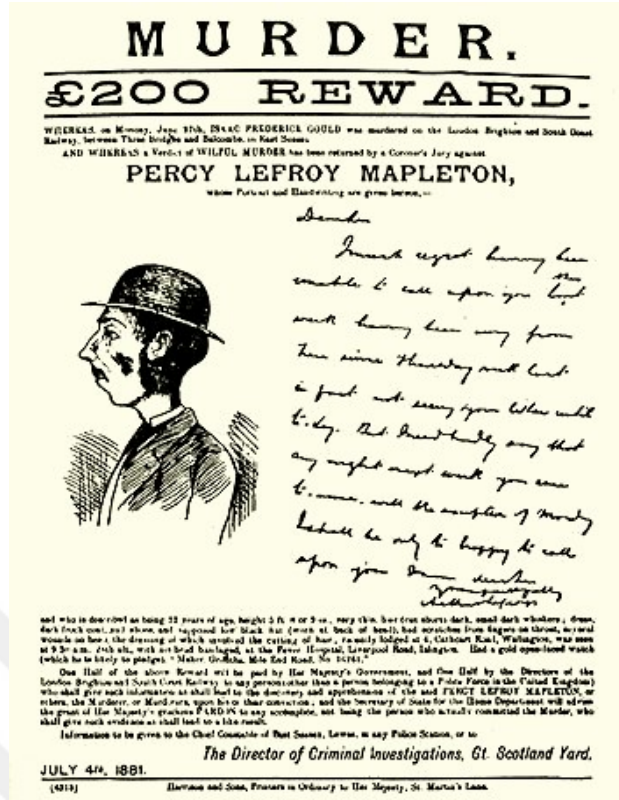 MURDER.
£200 REWARD.
WHEREAS, on Monday, June 27th, ISAAC FREDERICK GOULD was murdered on the London Brighton and South Coast
Railway, between Three Bridges and Balcombe, in East Sussex.
AND WHEREAS a Verdict of WILFUL MURDER has been returned by a Coroner's Jury against
PERCY LEFROY MAPLETON,
whose Portrait and Handwriting are given hereon,—
Dear Sir
I much regret having been
unable to call upon you
the
week having been away from
here since Thursday
in fact not seeing your letter until
to-day. But I need hardly say that
any night next week you
to name, with the exception of Monday
I shall be only to happy to call
upon you
and who is described as being 22 years of age, height 5 ft. 8 or 9 in., very thin, hair (cut short) dark, small dark whiskers; dress,
dark frock coat, and shoes, and supposed low black hat (worn at back of head), had scratches from fingers on throat, several
wounds on head, the dressing of which involved the cutting of hair, recently lodged at 4, Cathcart Road, Wallington, was seen
at 9.30 a.m. 28th ult., with his head bandaged, at the Fever Hospital, Liverpool Road, Islington. Had a gold open-faced watch
(which he is likely to pledge), "Maker, Griffiths, Mile End Road, No.
One Half of the above Reward will be paid by Her Majesty's Government, and One Half by the Directors of the
London Brighton and South Coast Railway to any person (other than a person belonging to a Police Force in the United Kingdom)
who shall give such information as shall lead to the discovery and apprehension of the said PERCY LEFROY MAPLETON, or
others, the Murderer, or Murderers, upon his or their conviction; and the Secretary of State for the Home Department will advise
the grant of Her Majesty's gracious PARDON to any accomplice, not being the person who actually committed the Murder, who
shall give such evidence as shall lead to a like result.
Information to be given to the Chief Constable of East Sussex, Lewes, at any Police Station, or to
The Director of Criminal Investigations, Gt. Scotland Yard.
JULY 4TH, 1881.
(4313) Harrison and Sons, Printers in Ordinary to Her Majesty, St. Martin's Lane.